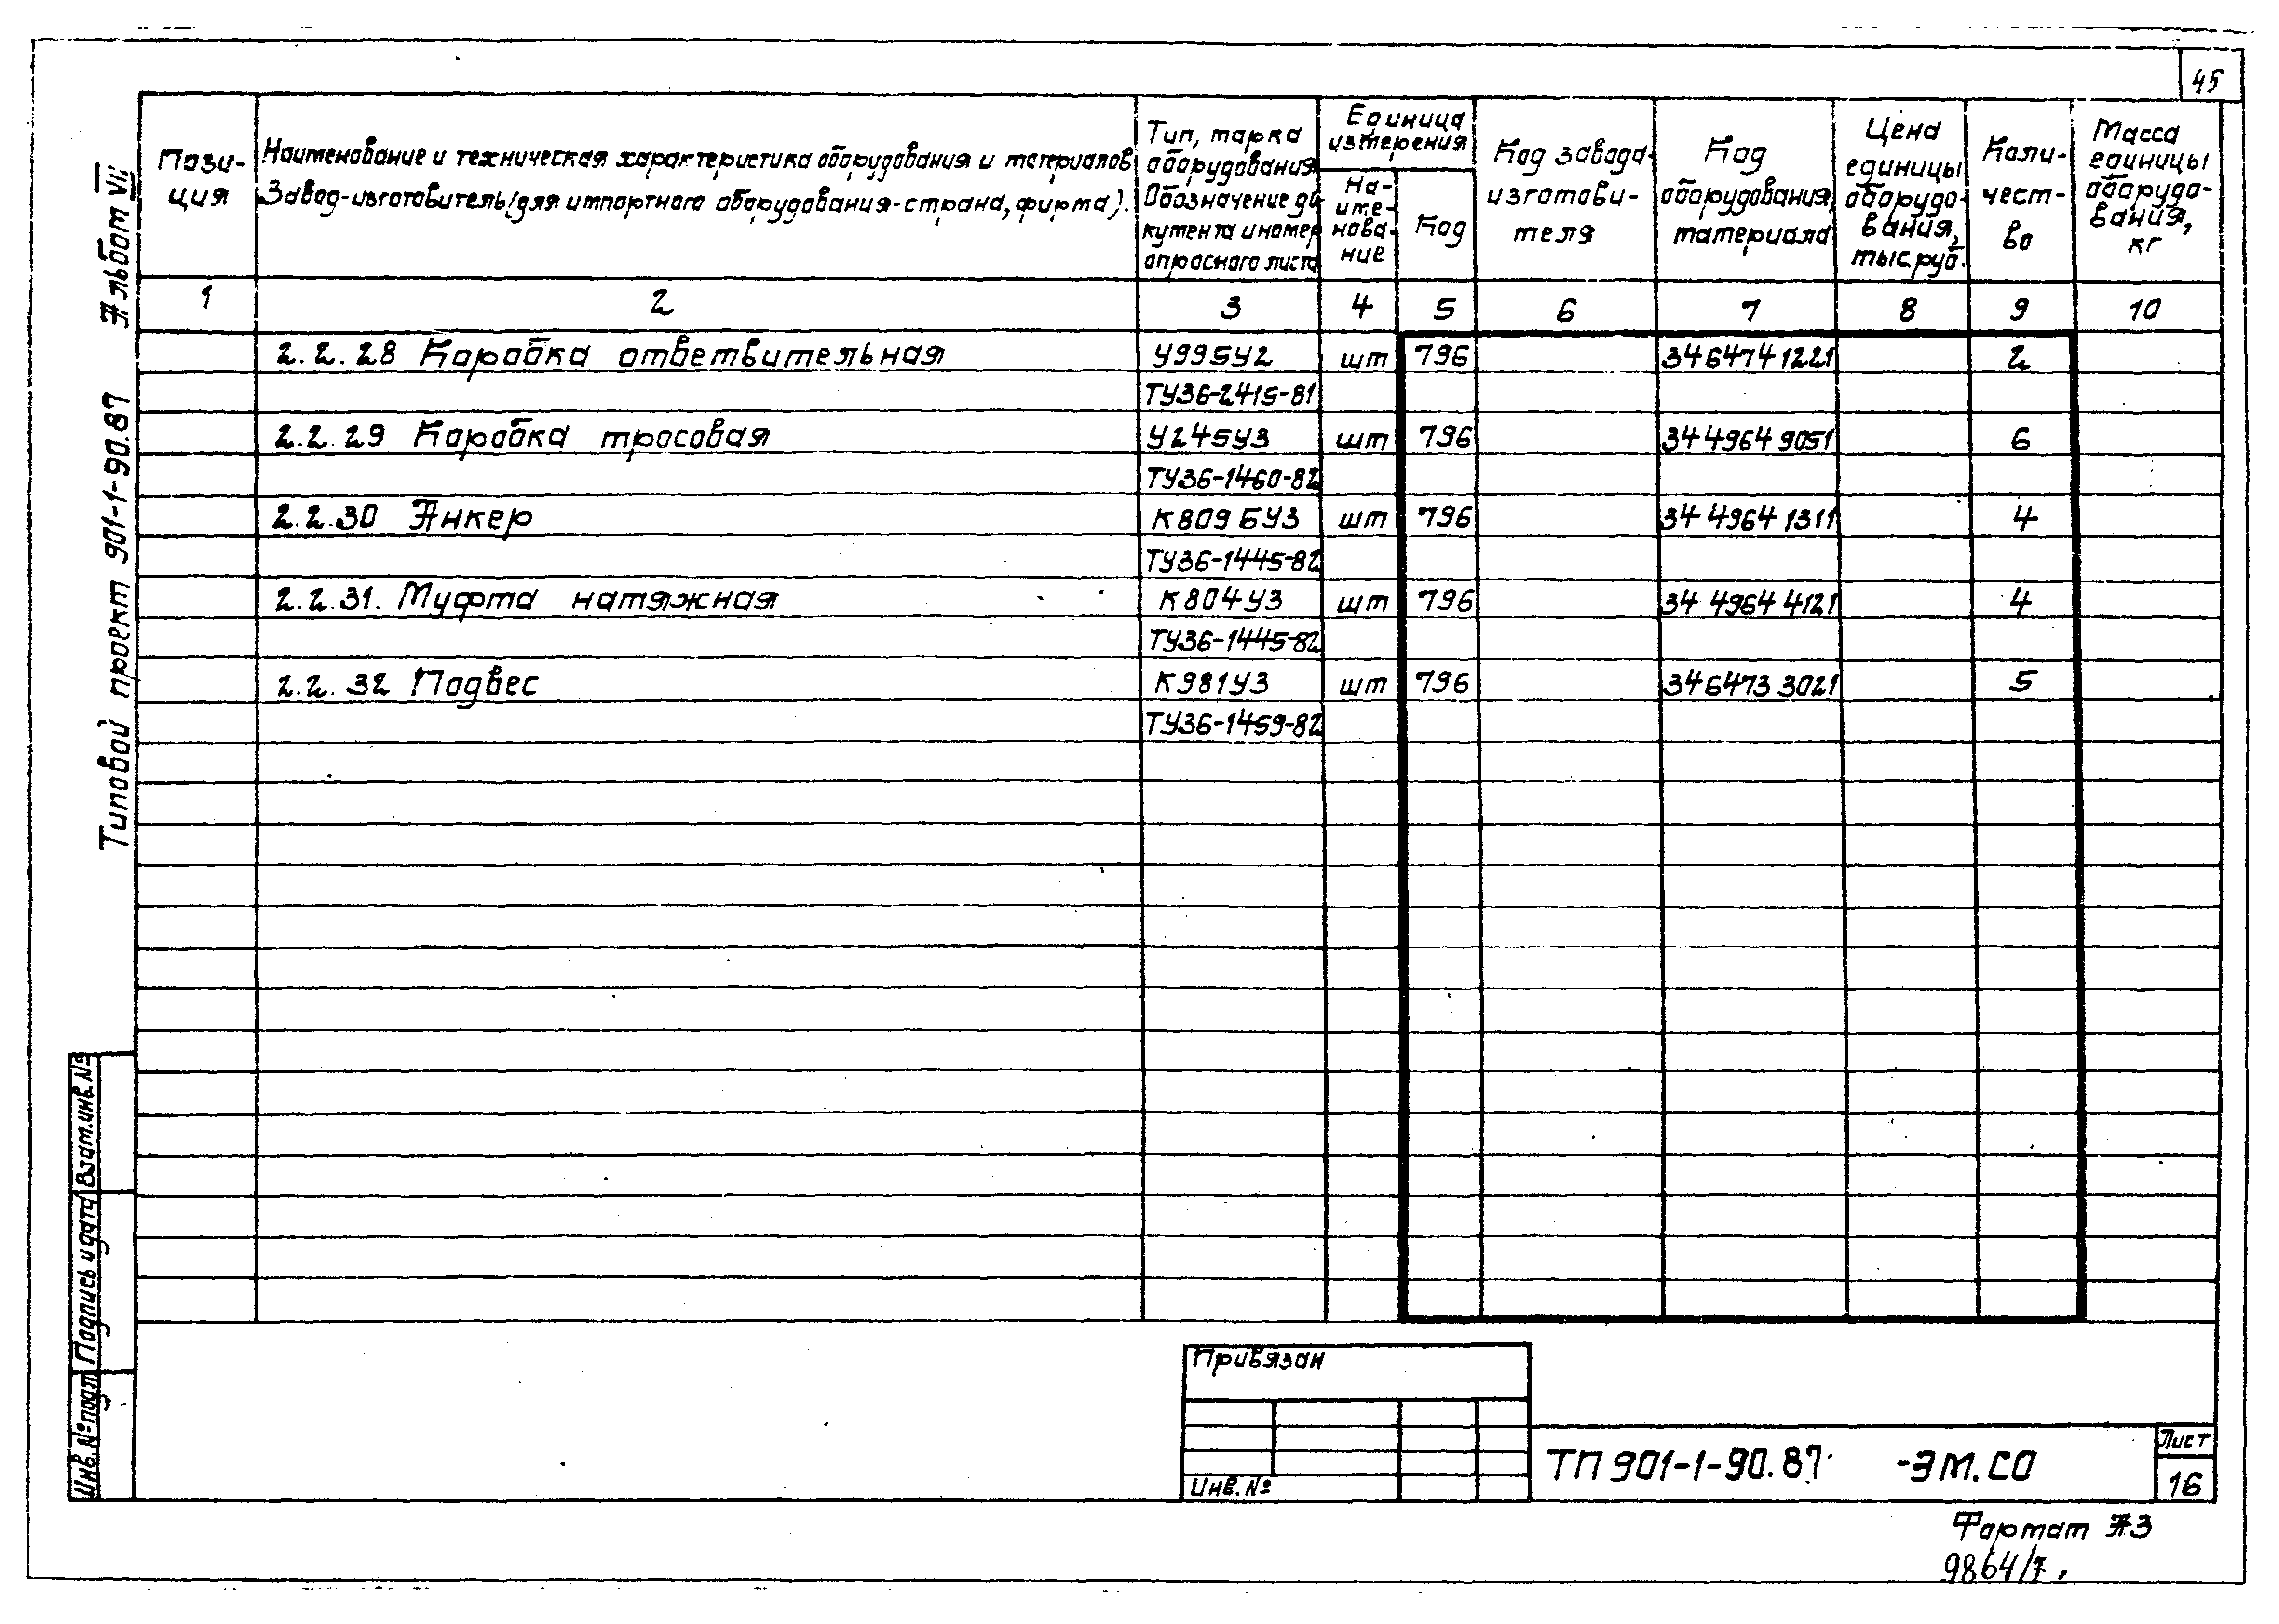 45
Пози-
ция
Наименование и техническая характеристика оборудования и материалов
Завод-изготовитель (для импортного оборудования-страна, фирма).
Тип, марка
оборудования
Обозначение до
кумента и номер
опросного листа
Единица
измерения
На-
име-
нова-
ние
Код
Код завода-
изготови-
теля
Код
оборудования,
материала
Цена
единицы
оборудо-
вания,
тыс.руб.
Коли-
чест-
во
Масса
единицы
оборудо-
вания,
кг
1 2 3 4 5 6 7 8 9 10
2.2.28 Коробка ответвительная У995У2 шт 796 34 6474 1221 2
ТУ36-2415-81
2.2.29 Коробка тросовая У245У3 шт 796 34 4964 9051 6
ТУ36-1460-82
2.2.30 Анкер К809БУ3 шт 796 34 4964 1311 4
ТУ36-1445-82
2.2.31. Муфта натяжная К804У3 шт 796 34 4964 4121 4
ТУ36-1445-82
2.2.32 Подвес К981У3 шт 796 34 6473 3021 5
ТУ36-1459-82
Типовой проект 901-1-90.87 Альбом VII
Взам.инв.№
Подпись и дата
Инв.№подл
Привязан
Инв.№
ТП 901-1-90.87 -ЭМ.СО
Лист
16
Формат А3
9864/7